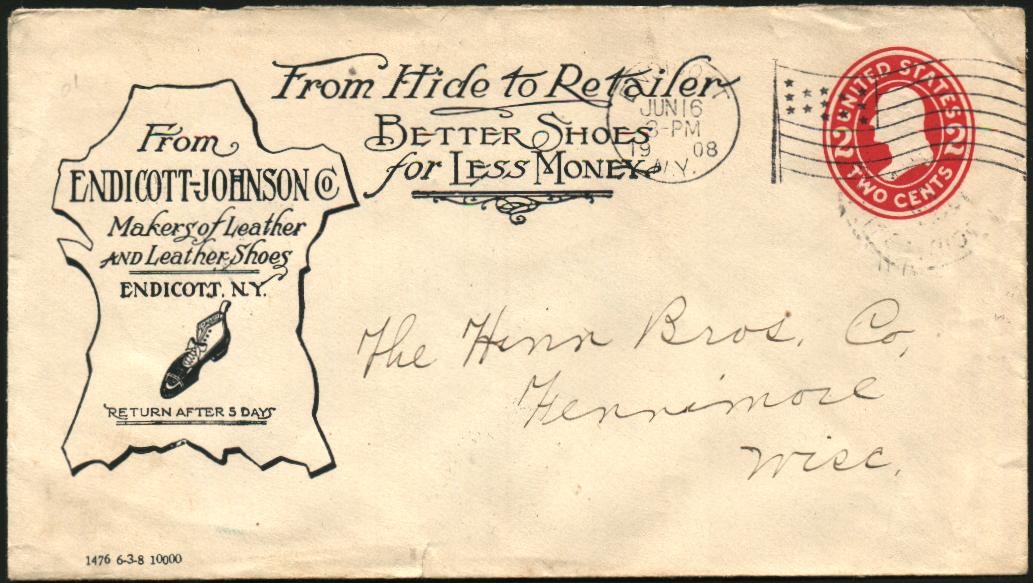 From Hide to Retailer
BETTER SHOES
for LESS MONEY.
From
ENDICOTT-JOHNSON CO.
Makers of Leather
AND Leather Shoes
ENDICOTT, N.Y.
RETURN AFTER 5 DAYS
1476 6-3-8 10000
JUN 16
8-PM
19 08
N.Y.
UNITED STATES
2 2
TWO CENTS
The Henn Bros. Co,
Fennimore
Wisc.